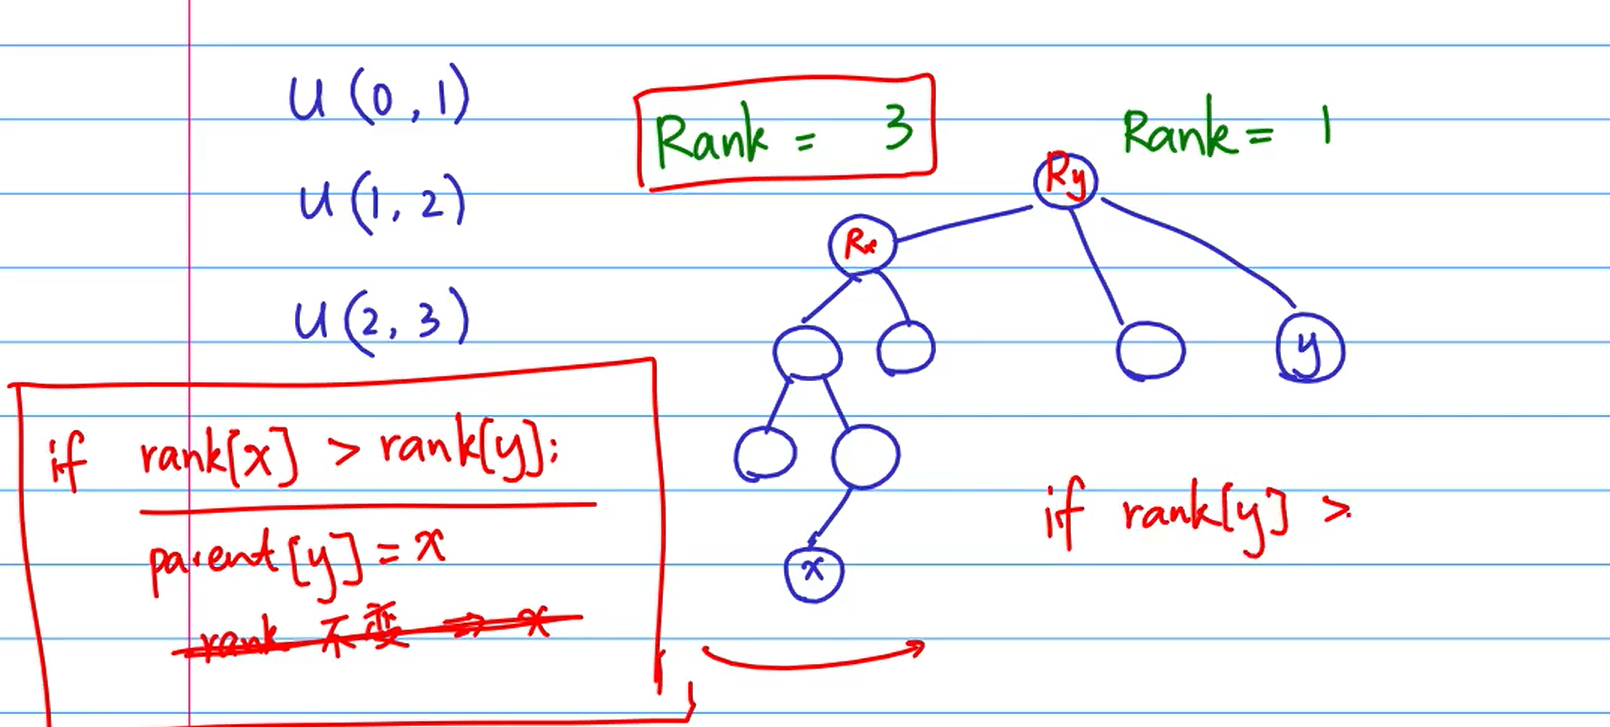 U (0, 1)
U (1, 2)
U (2, 3)
Rank = 3
Rank = 1
Ry
Rx
y
x
if rank[x] > rank[y]:
parent[y] = x
rank 不变 ⇒ x
if rank[y] >